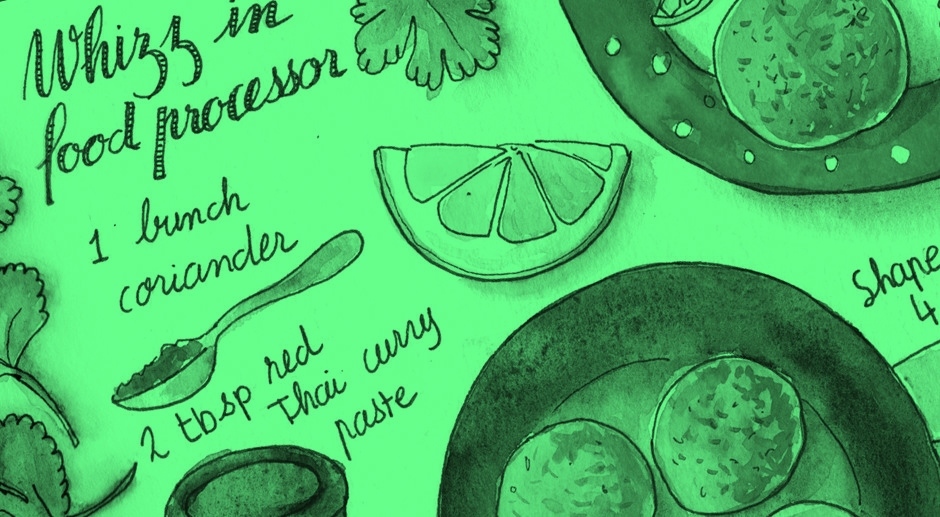 Whizz in
food processor
1 bunch
coriander
2 tbsp red
Thai curry
paste
Shape
4